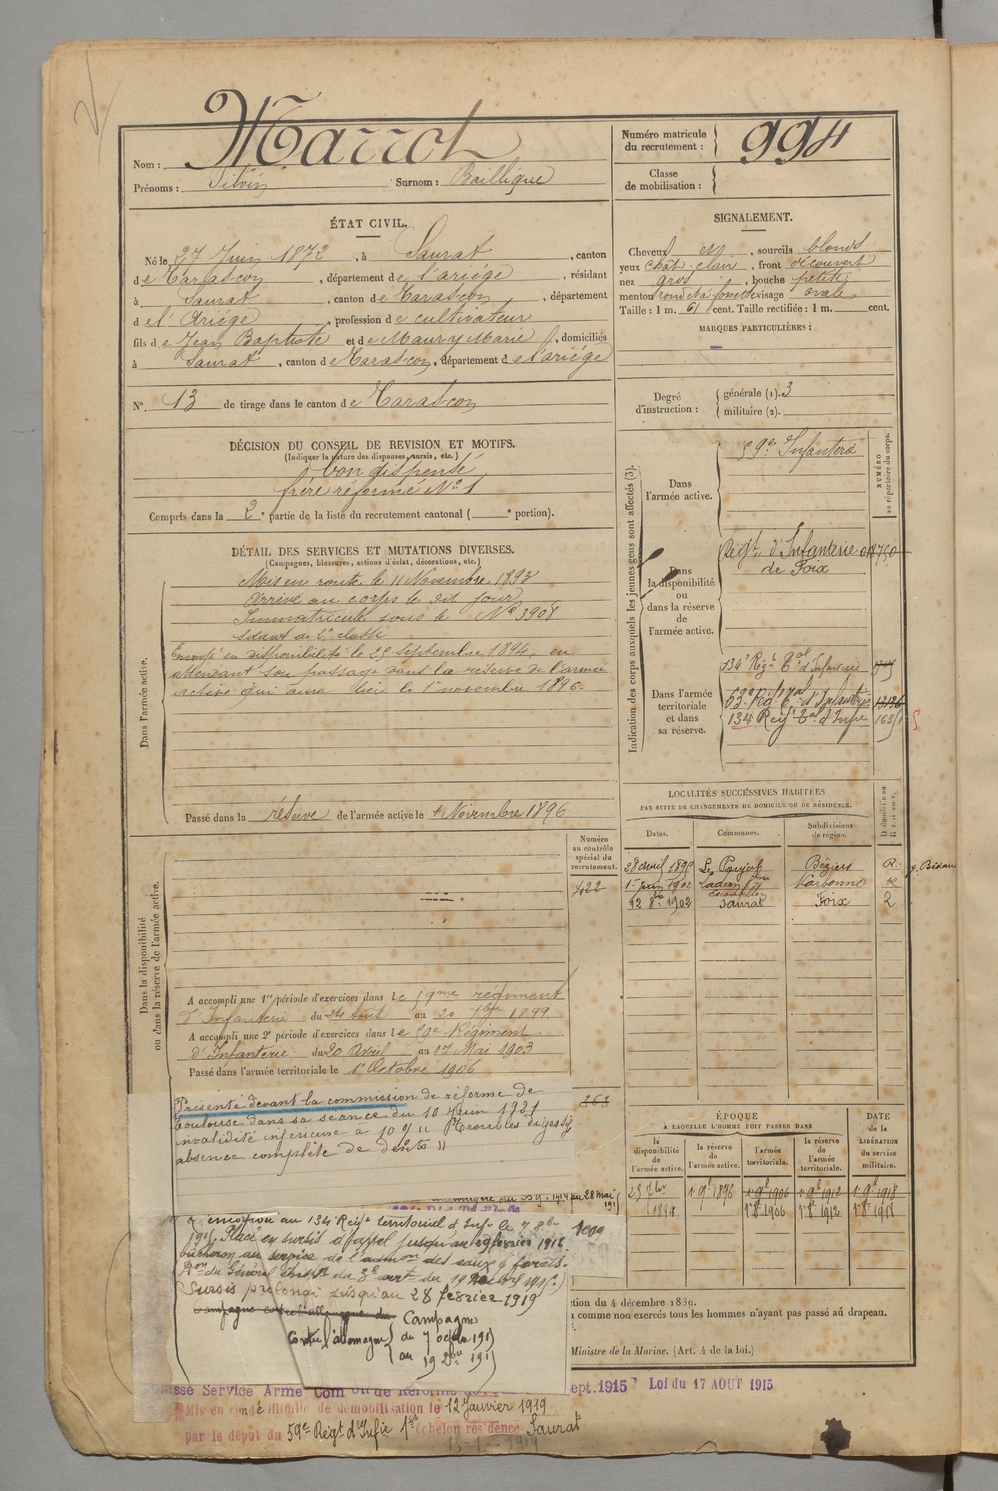 Nom : Marrot
Prénoms : Silvin Surnom : Baillique
Numéro matricule du recrutement : 994
Classe de mobilisation :
ÉTAT CIVIL.
Né le 27 Juin 1872, à Saurat, canton
de Tarascon, département de l'ariége, résidant
à Saurat, canton de Tarascon, département
de l'Ariége, profession de cultivateur
fils de Jean Baptiste et de Maury Marie, domiciliés
à Saurat, canton de Tarascon, département de l'ariége
N° 13 de tirage dans le canton de Tarascon
SIGNALEMENT.
Cheveux et, sourcils blonds
yeux chât. clair, front découvert
nez gros, bouche petite
menton rond et à fossette visage ovale
Taille : 1 m. 61 cent. Taille rectifiée : 1 m. cent.
MARQUES PARTICULIÈRES :
Degré d'instruction : générale (1). 3
militaire (2).
DÉCISION DU CONSEIL DE REVISION ET MOTIFS.
(Indiquer la nature des dispenses, sursis, etc.)
bon dispensé
frère réformé N° 1
Compris dans la 2e partie de la liste du recrutement cantonal ( e portion).
DÉTAIL DES SERVICES ET MUTATIONS DIVERSES.
(Campagnes, blessures, actions d'éclat, décorations, etc.)
Dans l'armée active.
Mis en route le 11 Novembre 1893
Arrivé au corps le dit jour
Immatriculé sous le N° 3908
soldat de 2e classe
Envoyé en disponibilité le 25 septembre 1894, en
attendant son passage dans la réserve de l'armée
active qui aura lieu le 1er novembre 1896.
Passé dans la réserve de l'armée active le 1er Novembre 1896
Indication des corps auxquels les jeunes gens sont affectés (3).
NUMÉRO au répertoire du corps.
Dans l'armée active.
59e Infanterie
Dans la disponibilité ou dans la réserve de l'armée active.
Régt d'Infanterie
de Foix
Dans l'armée territoriale et dans sa réserve.
134e Régt Tal d'Infanterie
134 Régt Tal d'Infie
LOCALITÉS SUCCESSIVES HABITÉES
PAR SUITE DE CHANGEMENTS DE DOMICILE OU DE RÉSIDENCE.
Dates. Communes. Subdivisions de région. Domicile ou Résidence.
Béziers R
Narbonne R
12 8bre 1902 Saurat Foix 2
Dans la disponibilité ou dans la réserve de l'armée active.
Numéro au contrôle spécial du recrutement.
422
A accompli une 1re période d'exercices dans le 59me régiment
d'Infanterie du 24 Août au 20 7bre 1899
A accompli une 2e période d'exercices dans le 59e Régiment
d'Infanterie du 20 Avril au 17 Mai 1903
Passé dans l'armée territoriale le 1er Octobre 1906
Présenté devant la commission de réforme de
Toulouse dans sa séance du 10 Juin 1921
invalidité inférieure à 10 % "Troubles digestifs
absence complète de dents"
263
ÉPOQUE
À LAQUELLE L'HOMME DOIT PASSER DANS
la disponibilité de l'armée active. la réserve de l'armée active. l'armée territoriale. la réserve de l'armée territoriale. DATE de la LIBÉRATION du service militaire.
25 7bre 1894 1er 9bre 1896 1er 9bre 1906 1er 9bre 1912 1er 9bre 1918
au 28 mai
au 134 Régt territorial d'Infie le 7 8bre
1915. Placé en sursis d'appel jusqu'au 29 février 1916
bûcheron au service de l'admon des eaux & forêts.
Sursis prolongé jusqu'au 28 février 1919
Campagne contre l'allemagne du
Campagne
Contre l'allemagne
du 7 octobre 191
au 19
1000
ction du 4 décembre 1889.
comme non exercés tous les hommes n'ayant pas passé au drapeau.
Ministre de la Marine. (Art. 4 de la loi.)
assé Service Armé Com on de Réforme
sept. 1915 Loi du 17 AOUT 1915
Mis en congé illimité de démobilisation le 12 Janvier 1919
par le dépôt du 59e Régt d'Infie 1er échelon résidence Saurat